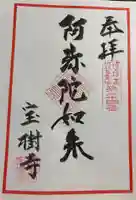 奉拝
阿弥陀如来
宝樹寺